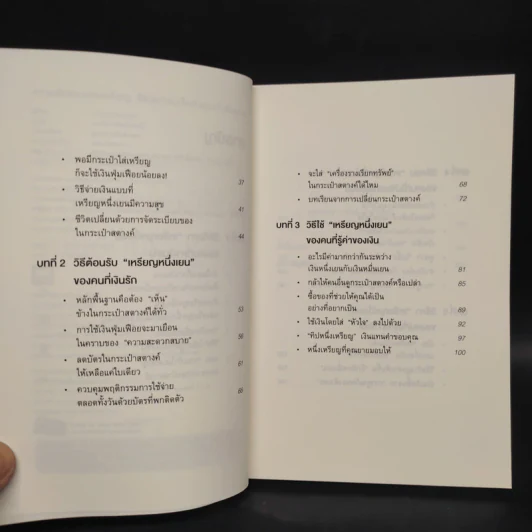 • พอมีกระเป๋าใส่เหรียญ
ก็จะใช้เงินฟุ่มเฟือยน้อยลง! 37
• วิธีจ่ายเงินแบบที่
เหรียญหนึ่งเยนมีความสุข 41
• ชีวิตเปลี่ยนด้วยการจัดระเบียบของ
ในกระเป๋าสตางค์ 44
บทที่ 2 วิธีต้อนรับ “เหรียญหนึ่งเยน”
ของคนที่เงินรัก
• หลักพื้นฐานคือต้อง “เห็น”
ข้างในกระเป๋าสตางค์ได้ทั่ว 53
• การใช้เงินฟุ่มเฟือยจะมาเยือน
ในคราบของ “ความสะดวกสบาย” 56
• ลดบัตรในกระเป๋าสตางค์
ให้เหลือแค่ใบเดียว 61
• ควบคุมพฤติกรรมการใช้จ่าย
ตลอดทั้งวันด้วยบัตรที่พกติดตัว 65
• จะใส่ “เครื่องรางเรียกทรัพย์”
ในกระเป๋าสตางค์ได้ไหม 68
• บทเรียนจากการเปลี่ยนกระเป๋าสตางค์ 72
บทที่ 3 วิธีใช้ “เหรียญหนึ่งเยน”
ของคนที่รู้ค่าของเงิน
• อะไรมีค่ามากกว่ากันระหว่าง
เงินหนึ่งเยนกับเงินหมื่นเยน 81
• กล้าให้คนอื่นดูกระเป๋าสตางค์หรือเปล่า 85
• ซื้อของที่ช่วยให้คุณได้เป็น
อย่างที่อยากเป็น 89
• ใช้เงินโดยใส่ “หัวใจ” ลงไปด้วย 92
• “ทิปหนึ่งเหรียญ” เงินแทนคำขอบคุณ 97
• หนึ่งเหรียญที่คุณยายมอบให้ 100